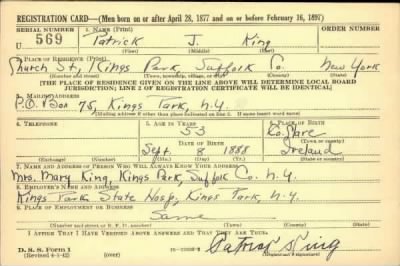 REGISTRATION CARD—(Men born on or after April 28, 1877 and on or before February 16, 1897)
SERIAL NUMBER 1. NAME (Print) ORDER NUMBER
U 569 Patrick J. King
(First) (Middle) (Last)
2. PLACE OF RESIDENCE (Print)
Church St, Kings Park, Suffolk Co. New York
(Number and street) (Town, township, village, or city) (County) (State)
[THE PLACE OF RESIDENCE GIVEN ON THE LINE ABOVE WILL DETERMINE LOCAL BOARD
JURISDICTION; LINE 2 OF REGISTRATION CERTIFICATE WILL BE IDENTICAL]
3. MAILING ADDRESS
P.O. Box 75, Kings Park, N.Y.
[Mailing address if other than place indicated on line 2. If same insert word same]
4. TELEPHONE 5. AGE IN YEARS 6. PLACE OF BIRTH
53 Co. Clare
DATE OF BIRTH (Town or county)
Sept. 8 1888 Ireland
(Exchange) (Number) (Mo.) (Day) (Yr.) (State or country)
7. NAME AND ADDRESS OF PERSON WHO WILL ALWAYS KNOW YOUR ADDRESS
Mrs. Mary King, Kings Park, Suffolk Co. N.Y.
8. EMPLOYER'S NAME AND ADDRESS
Kings Park State Hosp, Kings Park, N.Y.
9. PLACE OF EMPLOYMENT OR BUSINESS
Same
(Number and street or R. F. D. number) (Town) (County) (State)
I AFFIRM THAT I HAVE VERIFIED ABOVE ANSWERS AND THAT THEY ARE TRUE.
D. S. S. Form 1
(Revised 4-1-42) (over) Patrick King